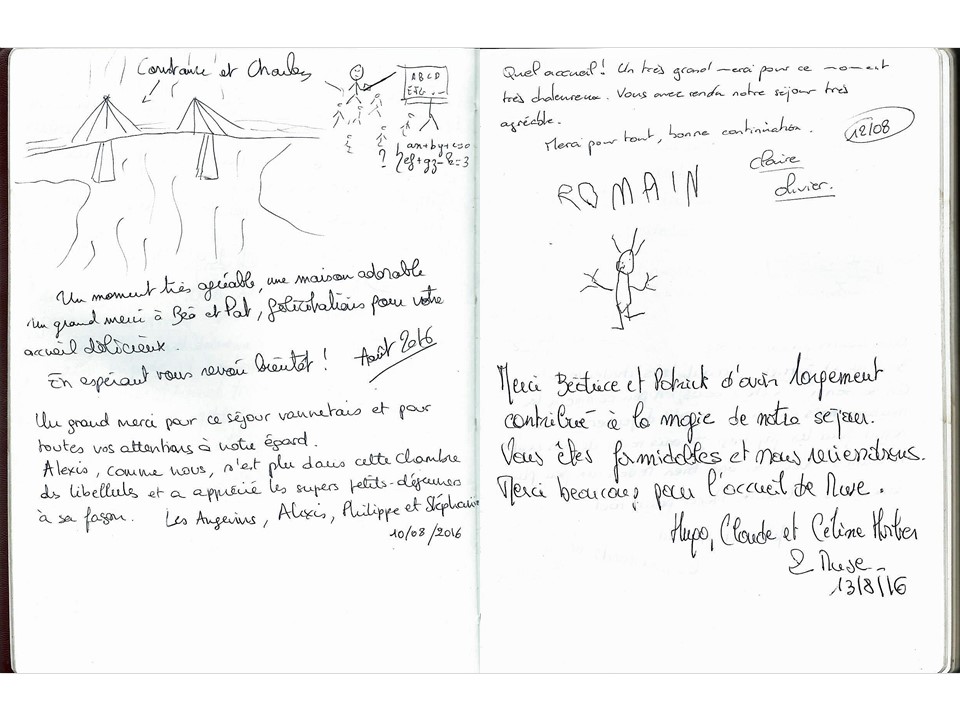 Constance et Charles
A B C D
E F G . --
ax+by+c=0
ef+gz-k=3
?
Un moment très agréable, une maison adorable
un grand merci à Béa et Pat, félicitations pour votre
accueil délicieux.
En espérant vous revoir bientôt !
Août 2016
Un grand merci pour ce séjour vannetais et pour
toutes vos attentions à notre égard.
Alexis, comme nous, s'est plu dans cette chambre
des libellules et a apprécié les supers petits-déjeuners
à sa façon. Les Angevins, Alexis, Philippe et Stéphanie
10/08/2016
Quel accueil ! Un très grand merci pour ce moment
très chaleureux. Vous avez rendu notre séjour très
agréable.
Merci pour tout, bonne continuation.
12/08
Claire
Olivier.
ROMAIN
Merci Béatrice et Patrick d'avoir largement
contribué à la magie de notre séjour.
Vous êtes formidables et nous reviendrons.
Merci beaucoup pour l'accueil de Muse.
Hugo, Claude et Céline
& Muse
13/8/16